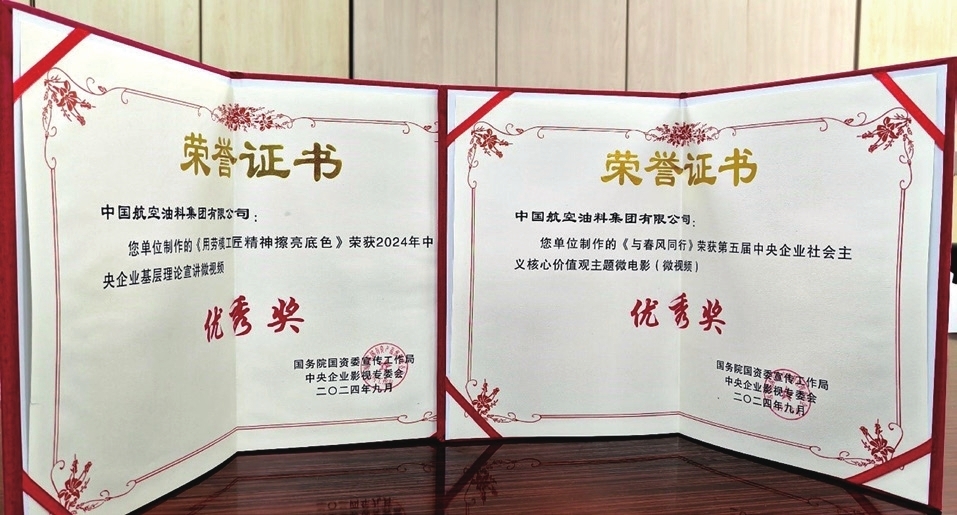 荣誉证书
中国航空油料集团有限公司：
您单位制作的《用劳模工匠精神擦亮底色》荣获2024年中
央企业基层理论宣讲微视频
优秀奖
国务院国资委宣传工作局
中央企业影视专委会
二〇二四年九月
荣誉证书
中国航空油料集团有限公司：
您单位制作的《与春风同行》荣获第五届中央企业社会主
义核心价值观主题微电影（微视频）
优秀奖
国务院国资委宣传工作局
中央企业影视专委会
二〇二四年九月